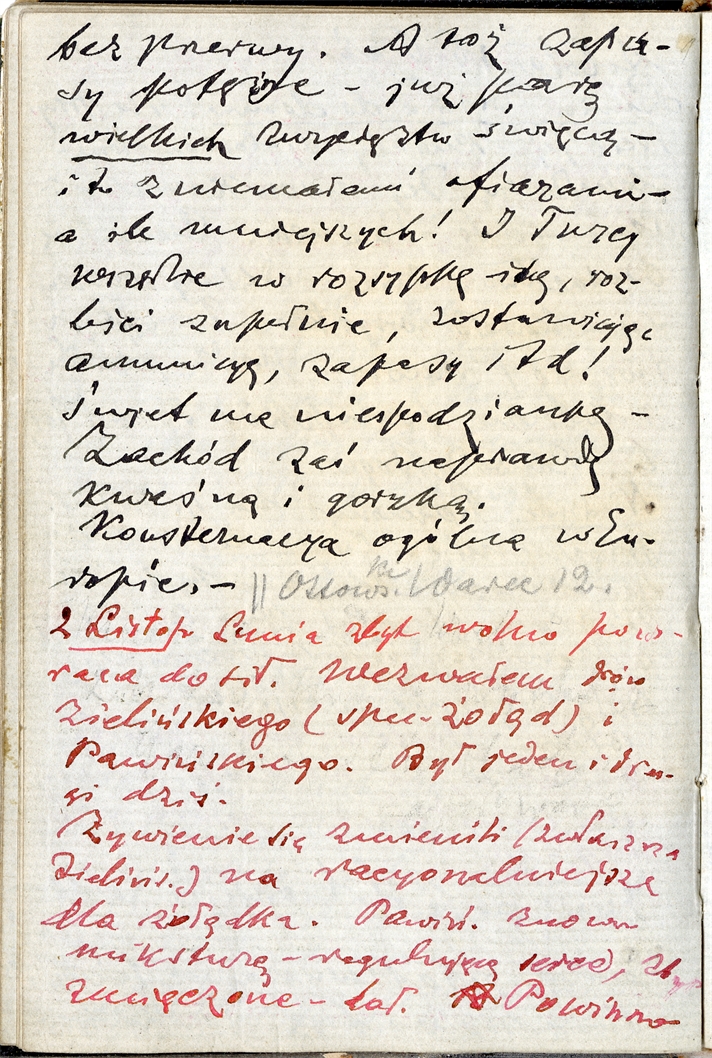 bez przerwy. A toż zapa-
sy potężne – już parę
wielkich zwycięztw święcą –
i to z niemałemi ofiarami –
a ile mniejszych! I Turcy
wszędzie w rozsypkę idą, roz-
bici zupełnie, zostawiając
amunicyę, zapasy itd!
Świat ma niespodziankę –
Zachód zaś naprawdę
kwaśną i gorzką.
Konsternacya ogólna w Eu-
ropie. –
2 Listop Lunia zbyt wolno pow-
raca do sił. Wezwałem drów
Zielińskiego (spec-żołąd) i
Pawińskiego. Był jeden i dru-
gi dziś.
Żywienie się zmienili (zwłaszcza
Zieliń.) na racyonalniejsze
dla żołądka. Pawiń. znowu
miksturę – regulującą serce, zbyt
zmęczone – dał. Powinno